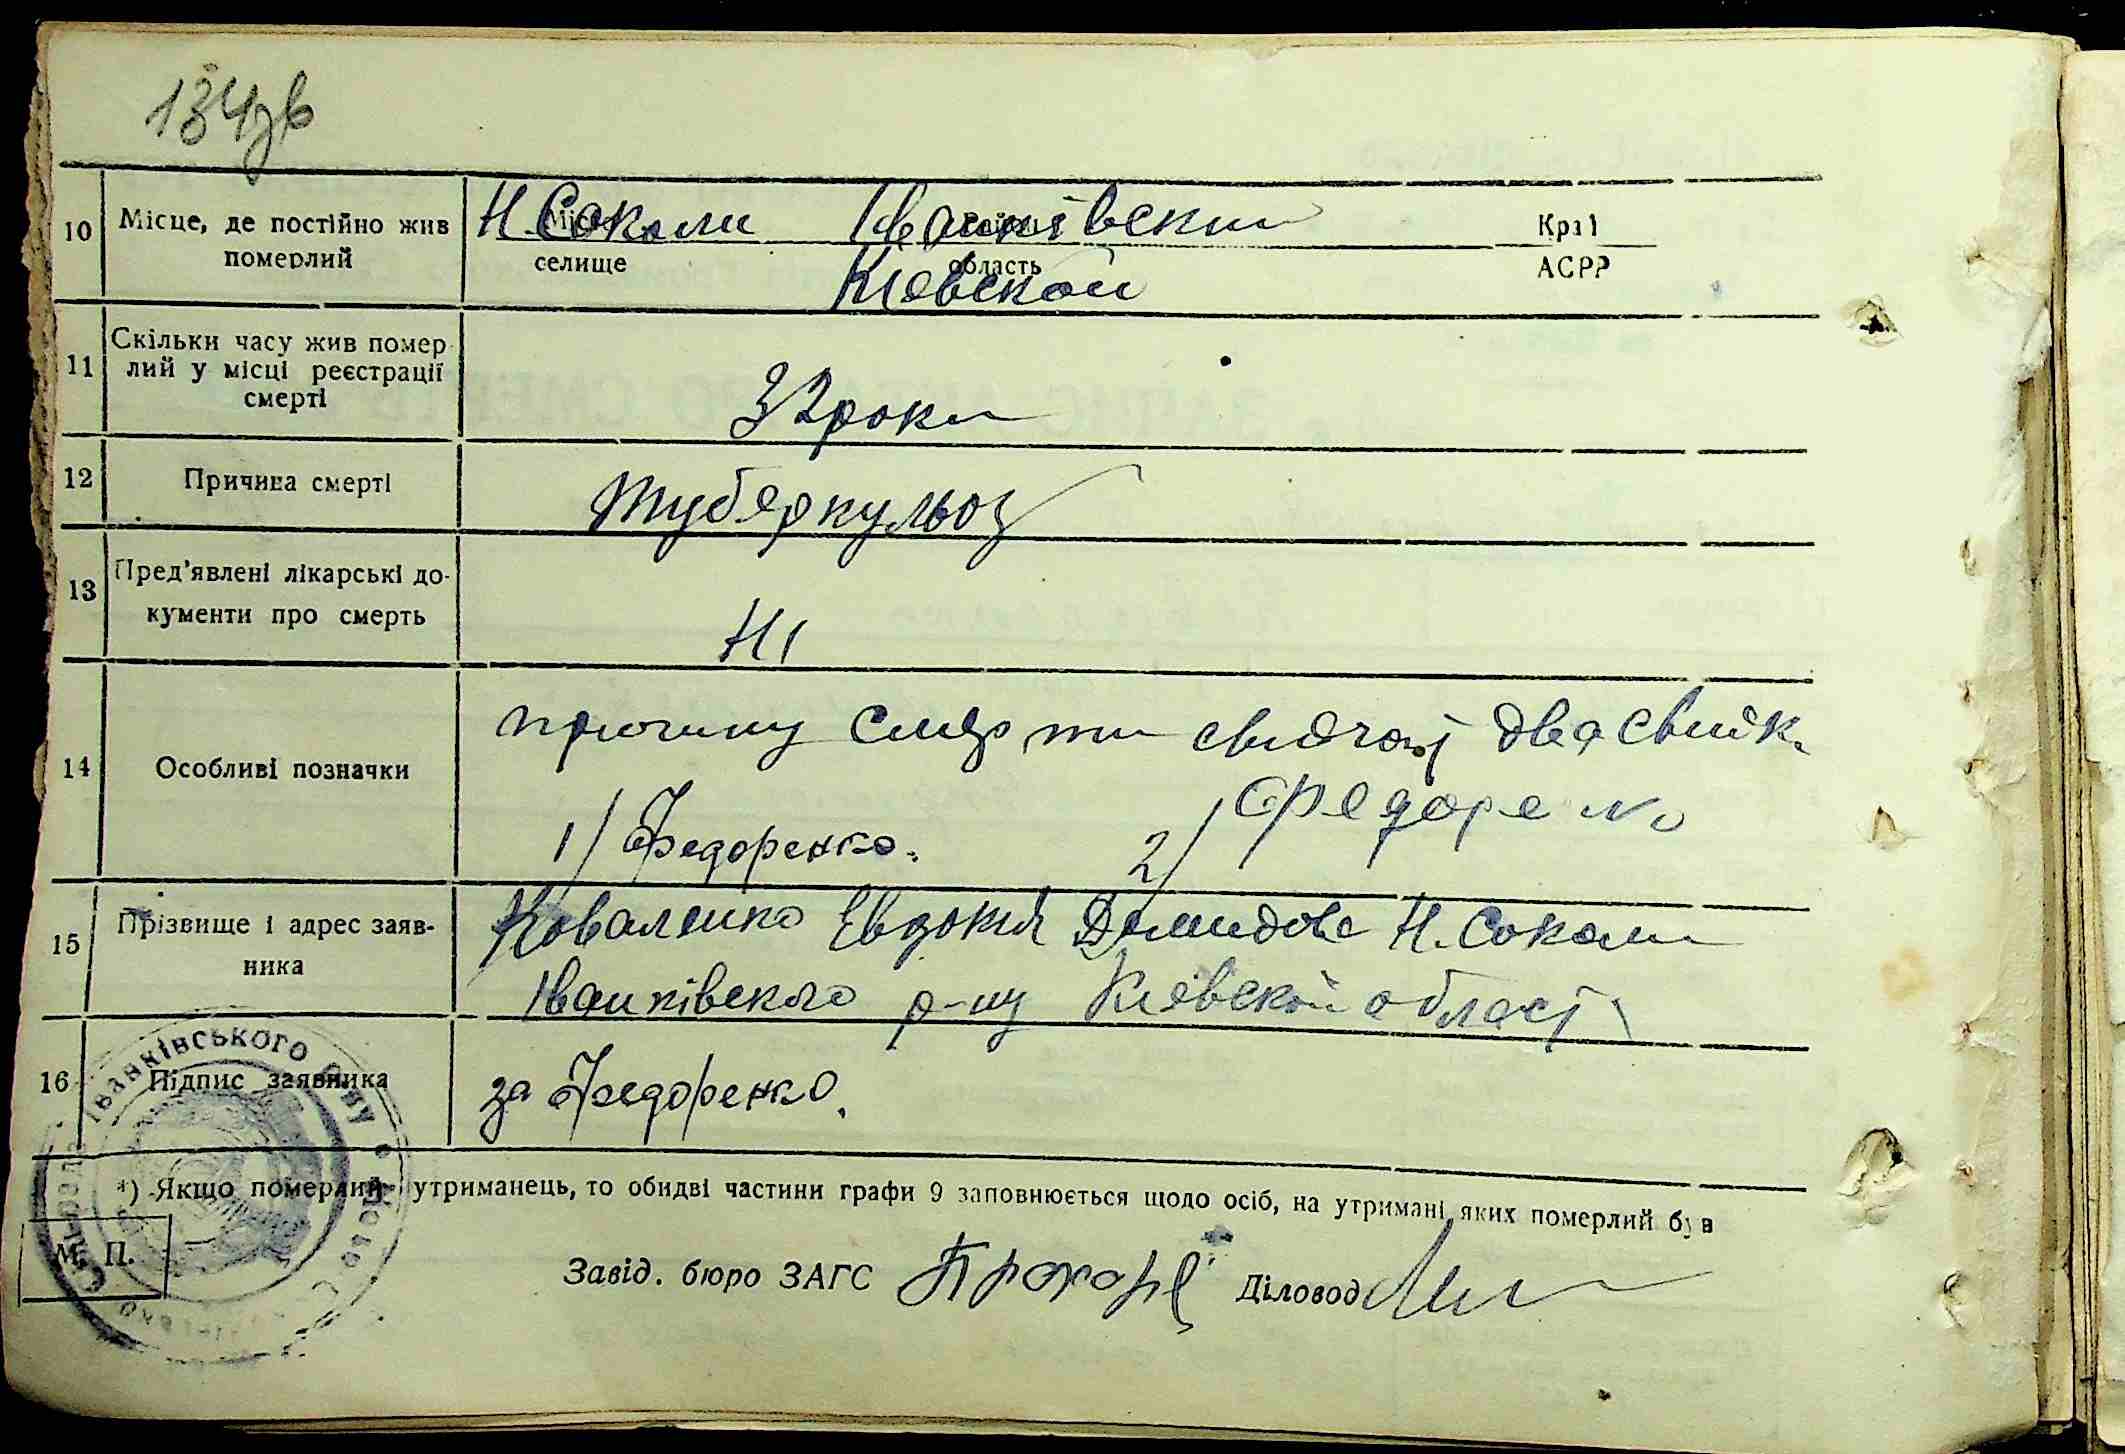 134зв
10 Місце, де постійно жив померлий
Н. Соколи Іванківский
Місто Район Край
селище область АСРР
Киевской
11 Скільки часу жив померлий у місці реєстрації смерті
32 роки
12 Причина смерті
Туберкульоз
13 Пред'явлені лікарські документи про смерть
Ні
14 Особливі позначки
причину смерти свідчат два свидк.
1/ Федоренко. 2/ Федоренко
15 Прізвище і адрес заявника
Коваленко Евдокія Демидовс Н. Соколи
Іванківского р-ну Киевской област
16 Підпис заявника
за Федоренко.
Іванківського р-ну
*) Якщо померлий утриманець, то обидві частини графи 9 заповнюється щодо осіб, на утримані яких померлий був
М. П.
Завід. бюро ЗАГС Діловод